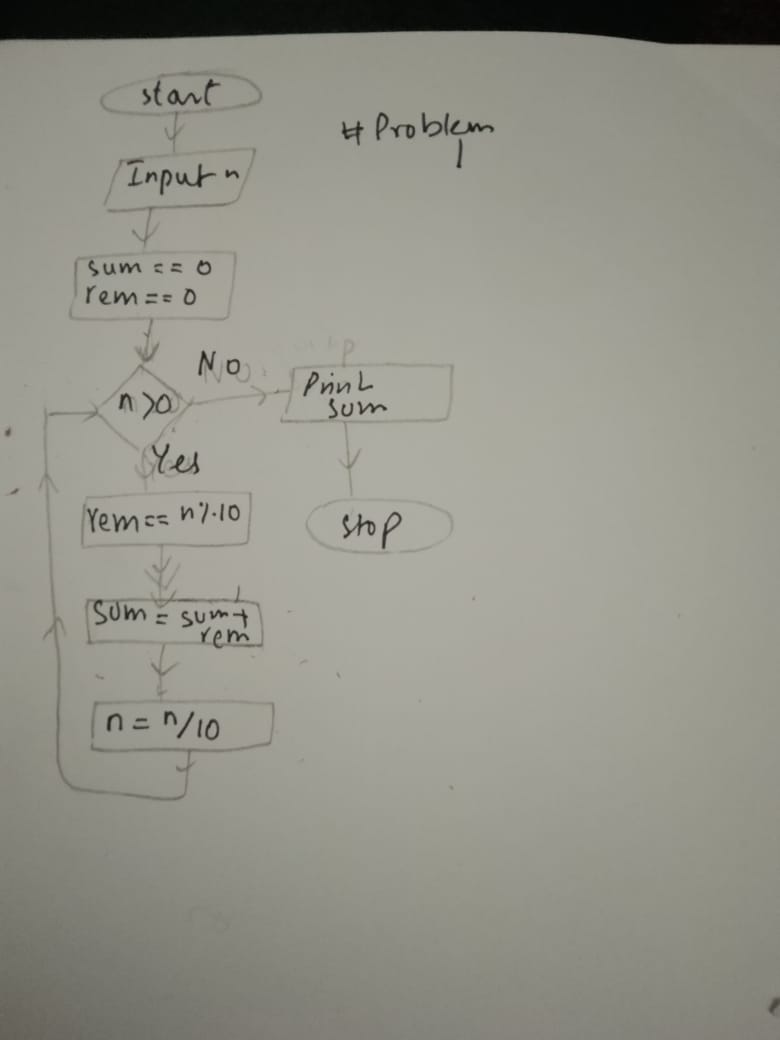 start
# Problem
1
Input n
sum == 0
rem == 0
n>0
No
Print
sum
Yes
rem == n%10
stop
sum = sum+
rem
n = n/10